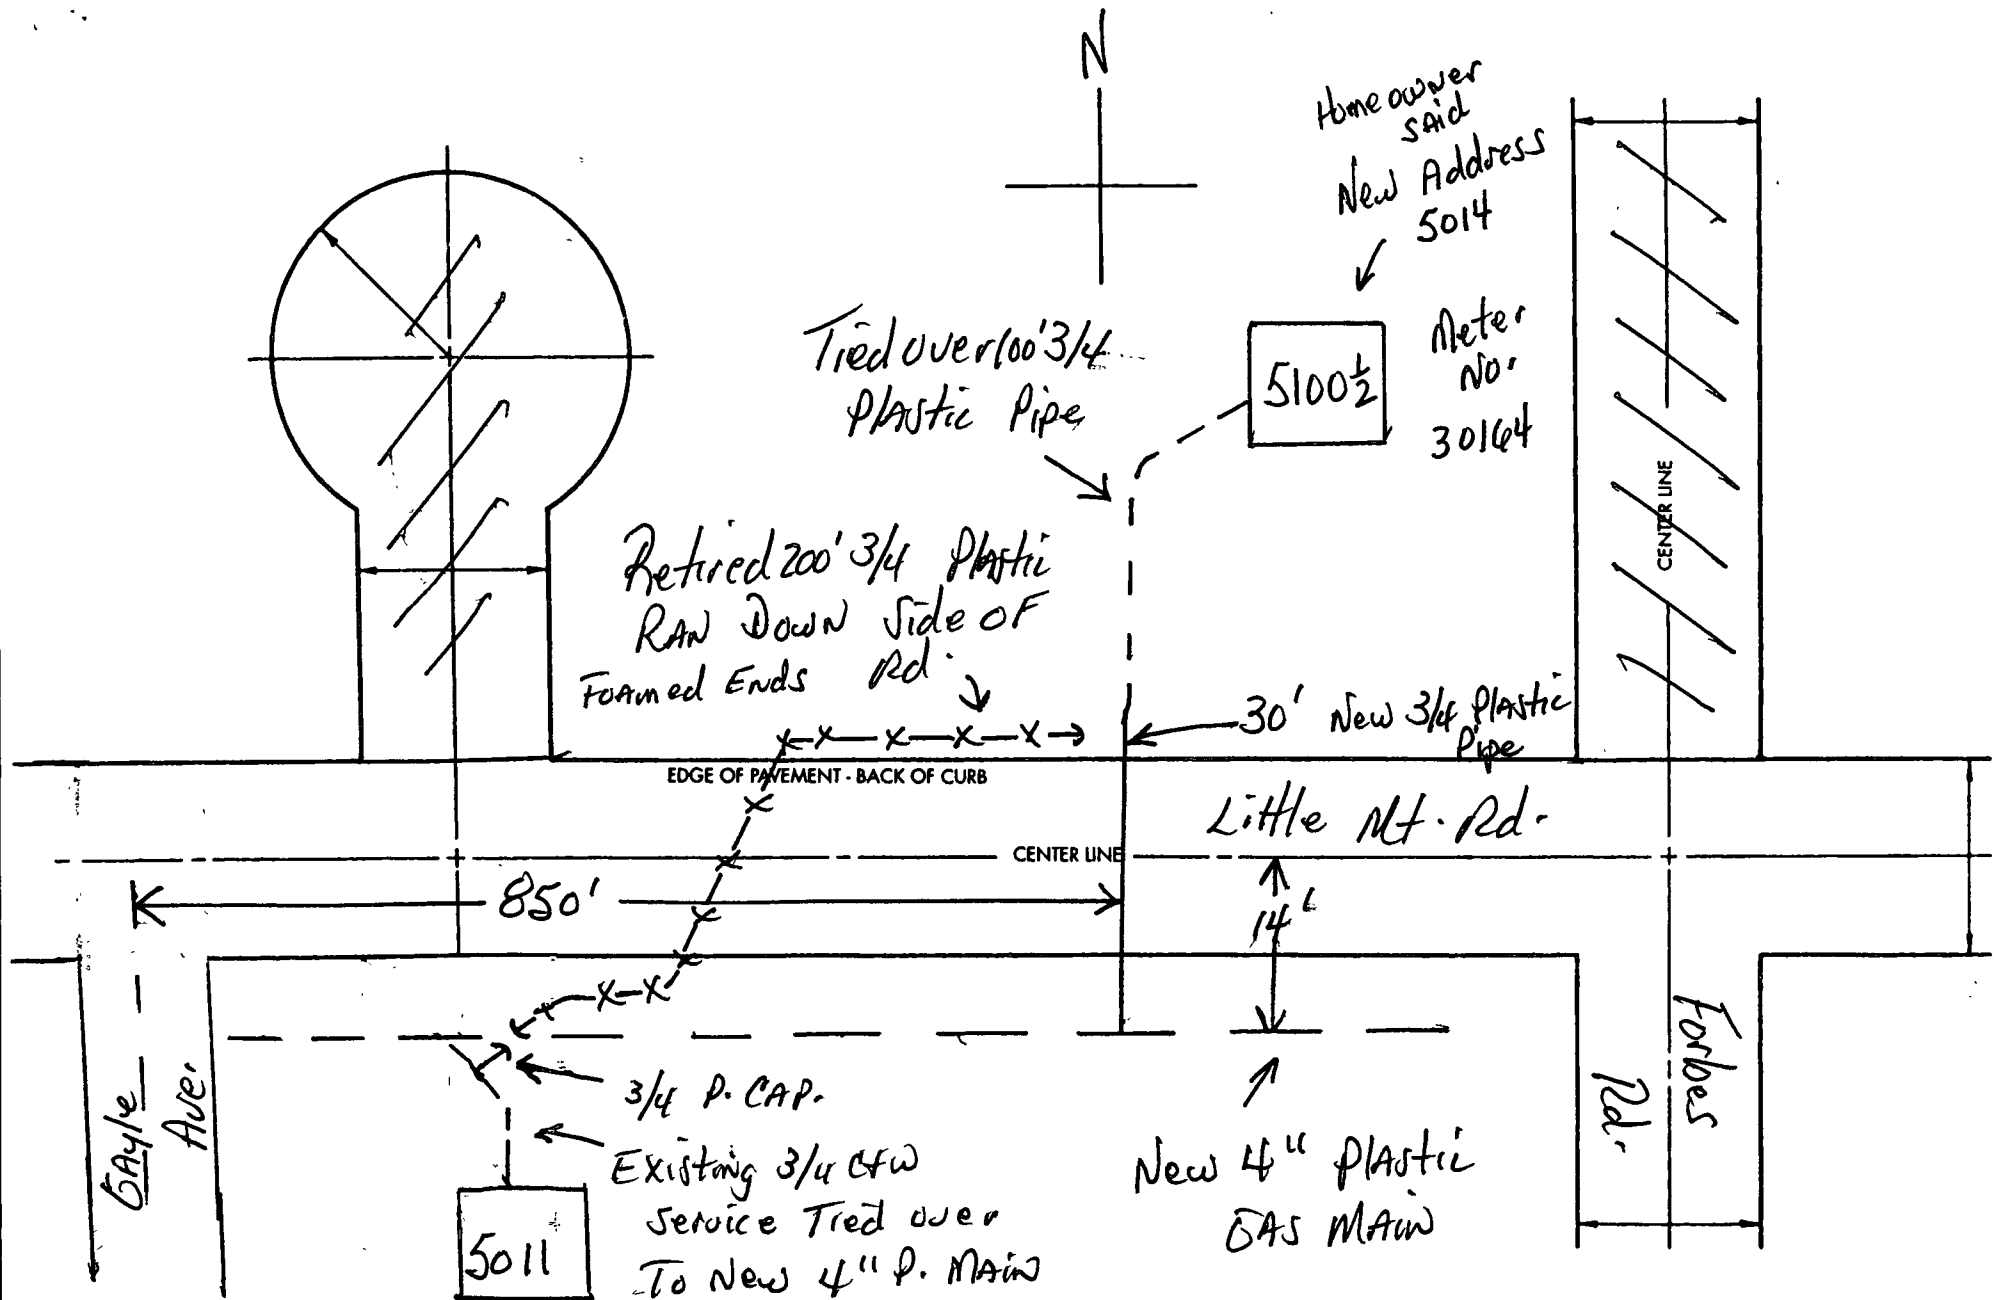 N
Homeowner
said
New Address
5014
Tied over 100' 3/4
Plastic Pipe
5100½
Meter
No.
30164
CENTER LINE
Retired 200' 3/4 Plastic
Ran Down Side of
Rd.
Foamed Ends
30' New 3/4 Plastic
Pipe
EDGE OF PAVEMENT - BACK OF CURB
Little Mt. Rd.
CENTER LINE
850'
14'
Gayle
Ave.
Forbes
Rd.
3/4 P. CAP.
Existing 3/4
Service Tied over
To New 4" P. Main
5011
New 4" Plastic
Gas Main